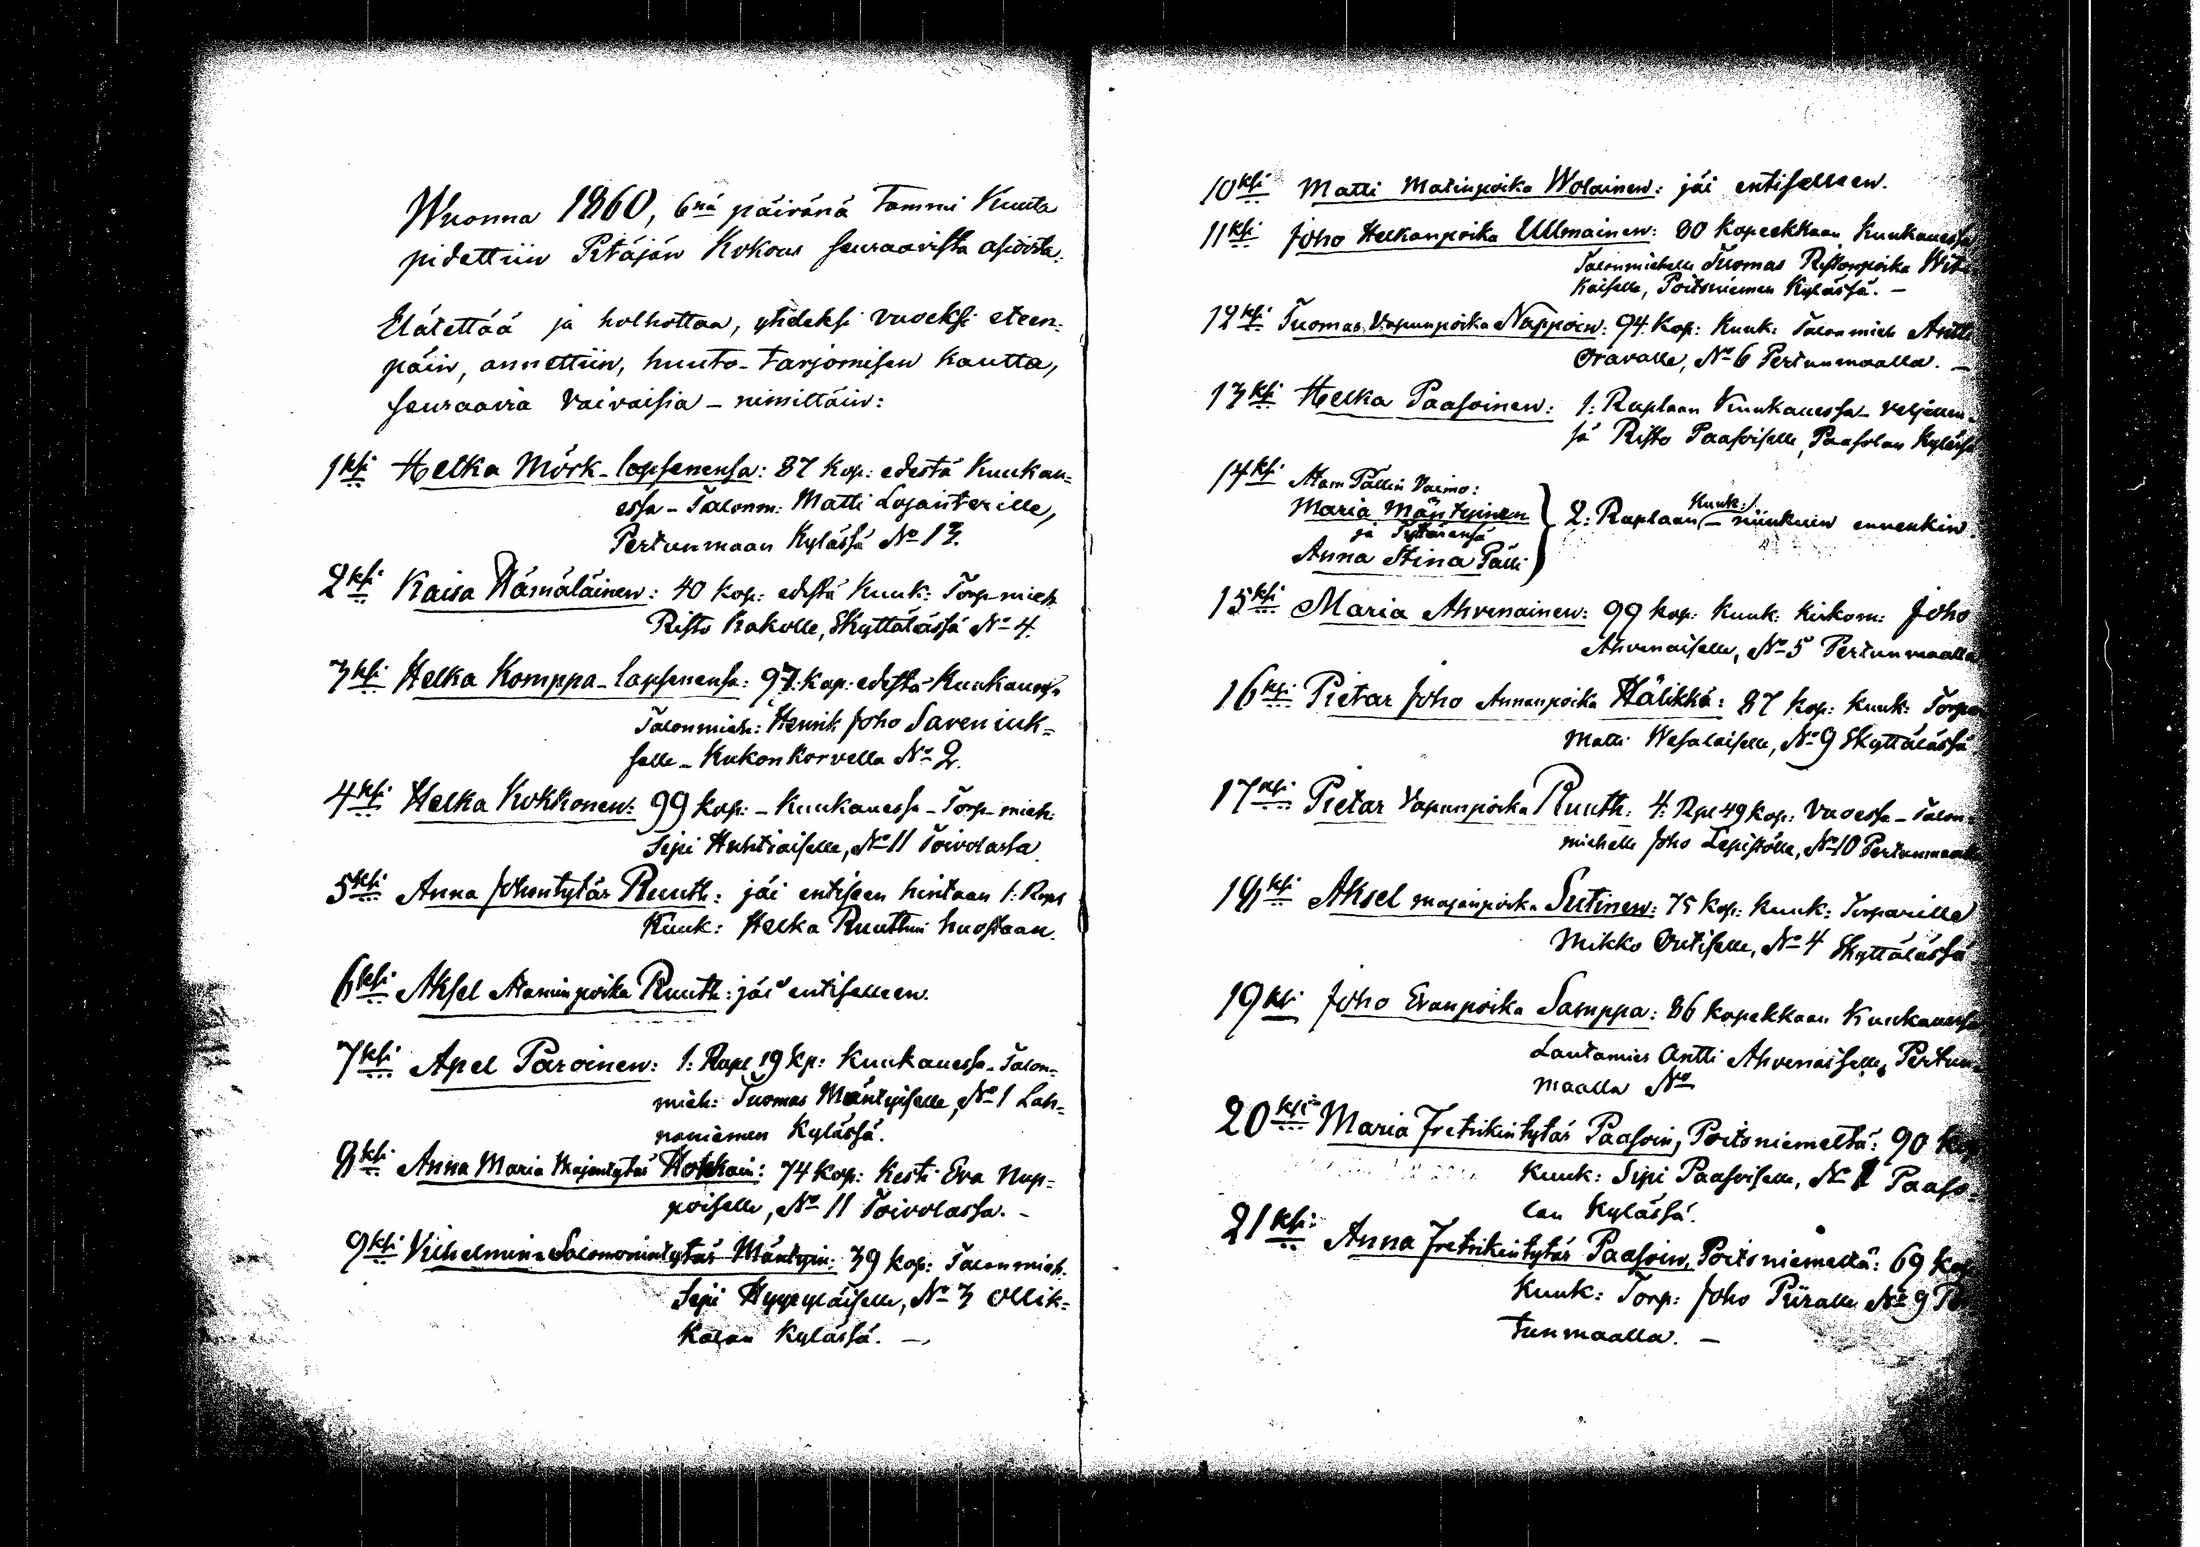 Wuonna 1860, 6nä päivänä Tammi Kuuta
pidettiin Pitäjän Kokous seuraavista asioista.
Elätettää ja holhottaa, yhdeksi vuoeksi eteen-
päin, annettiin, huuto-tarjomisen kautta,
seuraavia vaivaisia - nimittäin:
1ksi Helka Mörk - lapsenensa: 87 kop: edestä Kuukau-
essa - Talonm: Matti Lojanterille,
Pertunmaan Kylässä No 13.
2ksi Kaisa Hämäläinen: 40 kop: edestä Kuuk: Torp-mieh
Risto Kakolle, Skyttälässä No 4.
3ksi Helka Komppa - lapsenensa: 97. kop: edestä Kuukauessa
Talonmieh: Henrik Joho Saveniuk-
selle - Kukonkorvella No 2.
4ksi Helka Kokkonen: 99 kop: - Kuukauessa - Torp-mieh:
Sipi Huhtiaiselle, No 11 Toivolassa
5ksi Anna Johontytär Ruuth: jäi entiseen hintaan 1: Rupl
Kuuk: Helka Ruuthin huostaan.
6ksi Aksel Ataminpoika Ruuth: jäi entiselleen.
7ksi Apel Paroinen: 1: Rupl 19 kp: Kuukauessa - Talon-
mieh: Tuomas Mäntyiselle, No 1 Lah-
naniemen Kylässä.
8ksi Anna Maria Majantytär Hokkain: 74 kop: Kesti Eva Nup-
poiselle, No 11 Toivolassa. -
9ksi Vilhelmina Salomonintytär Mäntyin: 39 kop: Talonmieh.
Sipi Hyyryläiselle, No 3 Ollik-
kalan Kylässä. -
10ksi Matti Matinpoika Wolainen: jäi entiselleen.
11ksi Joho Helkanpoika Ullmainen: 80 kopeekkaan Kuukauessa
Talonmiehelle Tuomas Ristonpoika Witi-
kaiselle, Poitsniemen Kylässä. -
12ksi Tuomas Vapunpoika Nuppoin: 94. Kop: Kuuk: Talonmieh Antti
Oravalle, No 6 Pertunmaalla. -
13ksi Helka Paasoinen: 1: Ruplaan Kuukauessa - veljellen-
sä Risto Paasoiselle, Paasolan Kylässä
14ksi Atam Pällin Vaimo:
Maria Mäntyinen
ja Tytärensä
Anna Stina Pälli
2: Ruplaan Kuuk: - niinkuin ennenkin.
15ksi Maria Ahvenainen: 99 kop: Kuuk: Kirkom: Joho
Ahvenaiselle, No 5 Pertunmaalla
16ksi Pietar Joho Annanpoika Hälikkä: 87 kop: Kuuk: Torpar
Matti Wesalaiselle, No 9 Skyttälässä
17ksi Pietar Vapunpoika Ruuth: 4: Rpl 49 kop: Vuoessa - Talon-
miehelle Joho Lepistölle, No 10 Pertunmaalla
18ksi Aksel Majanpoika Sutinen: 75 kop: Kuuk: Torparille
Mikko Outiselle, No 4 Skyttälässä
19ksi Joho Evanpoika Samppa: 86 kopekkaan Kuukauessa
Lautamies Antti Ahvenaiselle, Pertun-
maalla No
20ksi Maria Fretrikintytär Paasoin, Poitsniemeltä: 90 kop
Kuuk: Sipi Paasoiselle, No 1 Paaso-
lan Kylässä.
21ksi: Anna Fretrikintytär Paasoin, Poitsniemeltä: 69 kop
Kuuk: Torp: Joho Piiralle No 9 Per-
tunmaalla. -